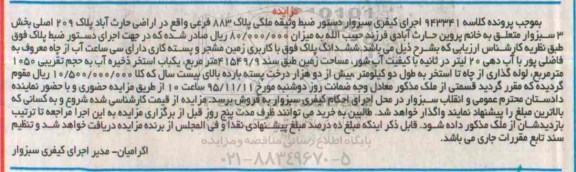 مزایده
بموجب پرونده کلاسه 943341 اجرای کیفری سبزوار دستور ضبط وثیقه ملکی پلاک 883 فرعی واقع در اراضی حارث آباد پلاک 209 اصلی بخش
3 سبزوار متعلق به خانم پروین حارث آبادی فرزند حبیب الله به میزان 80/000/000 ریال صادر شده که در جهت اجرای دستور ضبط پلاک فوق
طبق نظریه کارشناس ارزیابی که بشرح ذیل می باشد ششدانگ پلاک فوق با کاربری زمین مشجر و پسته کاری دارای سی ساعت آب از چاه معروف به
فاضلی پور با آب دهی 20 لیتر در ثانیه با کیفیت آب شور، مساحت زمین طبق سند 41549/9 متر مربع، یکباب استخر ذخیره آب به حجم تقریبی 1050
مترمربع، لوله گذاری از چاه تا استخر به طول دو کیلومتر بیش از دو هزار درخت پسته بارده بالای بیست سال که کلا 10/500/000/000 ریال مقوم
گردیده که مقرر گردید قسمتی از ملک مذکور معادل وجه ضمانت روز دوشنبه مورخ 95/11/11 ساعت 10 از طریق مزایده حضوری و با حضور نماینده
دادستان محترم عمومی و انقلاب سبزوار در محل اجرای احکام کیفری سبزوار به فروش برسد. مزایده از قیمت کارشناسی شده شروع و به کسانی که
بالاترین مبلغ را پیشنهاد نمایند واگذار خواهد شد. طالبین به خرید می توانند ظرف مدت پنج روز قبل از برگزاری مزایده به این اجرا مراجعه تا ترتیب
بازدیدشان از ملک مذکور داده شود. قابل ذکر اینکه مبلغ ده درصد مبلغ پیشنهادی نقداً و فی المجلس از برنده مزایده دریافت خواهد شد و تنظیم
سند تابع مقررات جاری می باشد.
اکرامیان- مدیر اجرای کیفری سبزوار
پایگاه اطلاع رسانی مناقصه و مزایده
021-88349670-5